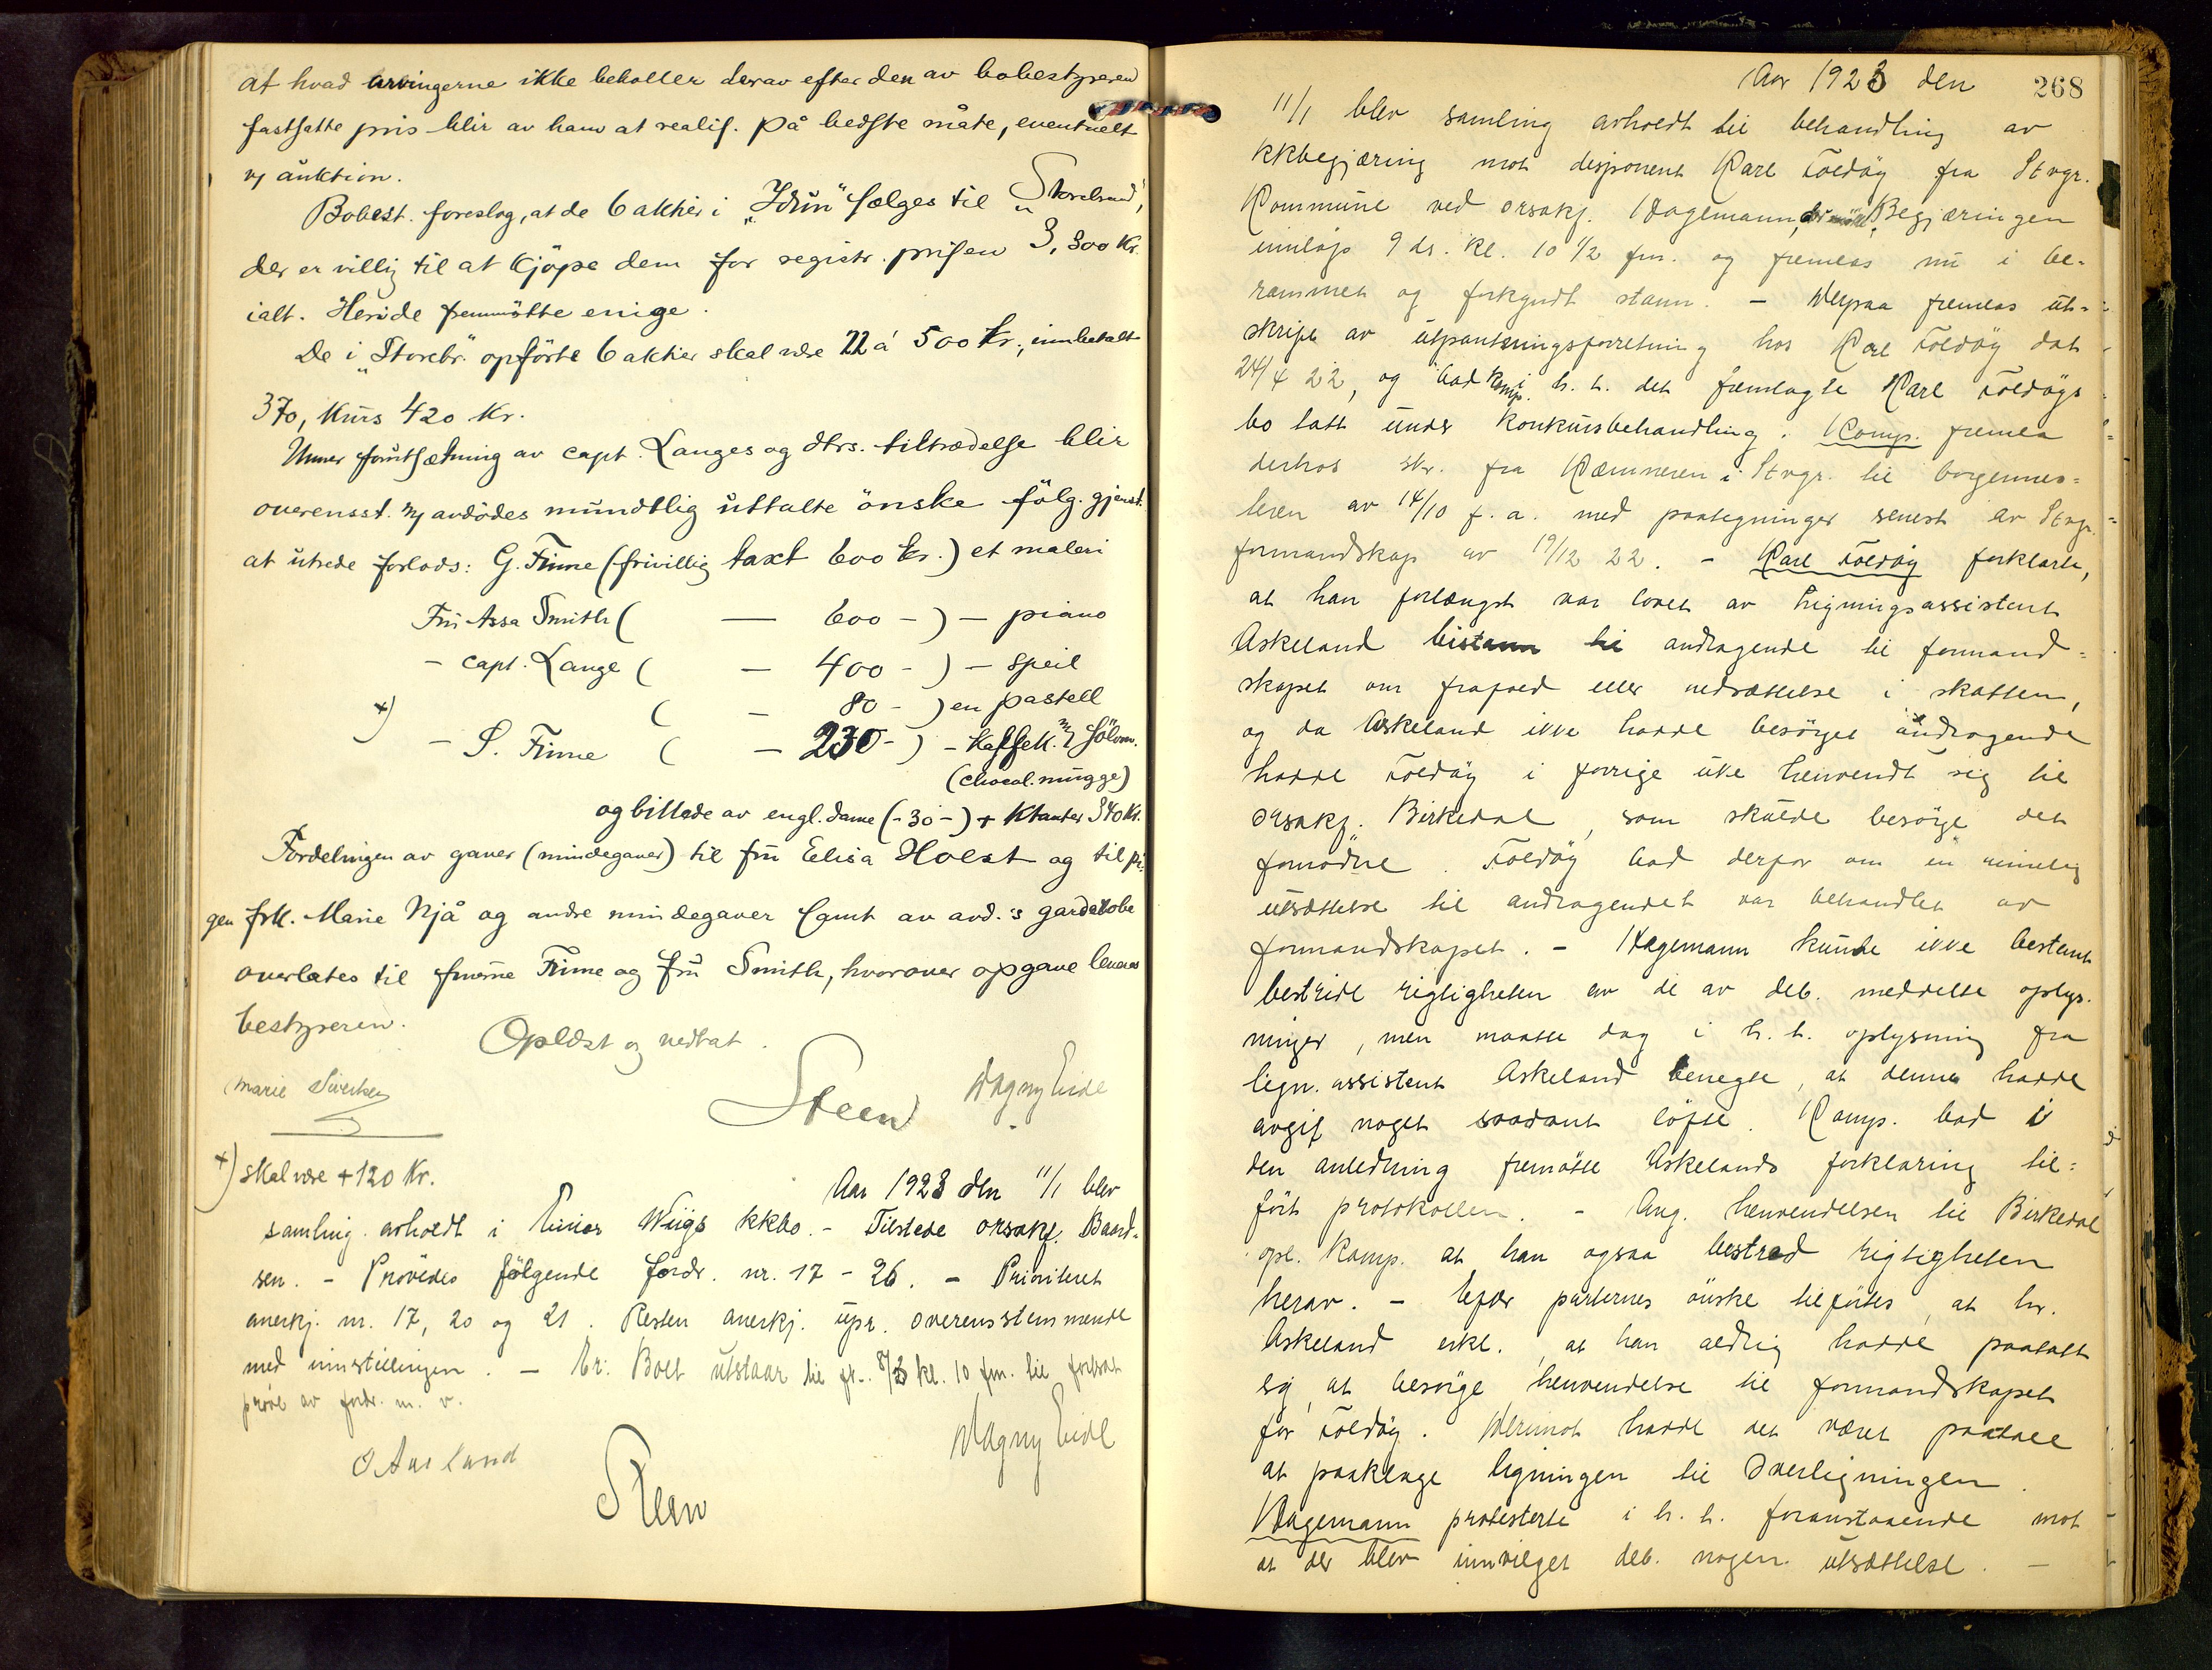 at hvad arvingerne ikke beholler derav efter den av bobestyreren
fastsatte pris blir av ham at realis. på bedste måte, eventuelt
v/ auktion.
Bobest. foreslog, at de 6 aktier i "Idun" sælges til "Storebrand",
der er villig til at kjöpe dem for registr. prisen 3,300 Kr.
ialt. Heri de fremmötte enige.
De i "Storebr." opförte 6 aktier skal være 22 á 500 kr., innbetalt
370, Kurs 420 Kr.
Unner forutsætning av capt. Langes og dtrs. tiltrædelse blir
overensst. m/ avdödes mundtlig uttalte önske fölg. gjenst.
at utrede forlods: G. Finne (frivillig taxt 600 kr.) et maleri
Fru Assa Smith ( — 600 - ) — piano
- capt. Lange ( — 400 - ) — speil
x) ( — 80 - ) en pastell
- S. Finne ( — 230 - ) - kaffek. m/ sölvm.
(chocol. mugge)
og billede av engl. dame (- 30 -) + Ktanter 340 Kr.
Fordelingen av gaver (mindegaver) til fru Elisa Holst og til pi-
gen frk. Marie Njå og andre mindegaver samt av avd.'s garderobe
overlates til fruerne Finne og fru Smith, hvorover opgave leveres
bestyreren.
Oplæst og vedtat.
Marie Sivertsen
Steen
Magny Eide
x) skal være + 120 Kr.
Aar 1923 den 11/1 blev
samling avholdt i Einar Wiigs kkbo. - Tilstede orsakf. Baard-
sen. - Prövedes fölgende fordr. nr. 17 - 26. - Prioritet
anerkj. nr. 17, 20 og 21. Resten anerkj. upr. overensstemmende
med innstillingen. - Er. Boet utstaar til fr. 8/3 kl. 10 fm. til fortsat
pröve av fordr. m. v.
O Ausland
Steen
Magny Eide
Aar 1923 den
268
11/1 blev samling avholdt til behandling av
kkbegjæring mot disponent Karl Foldöy fra Stvgr.
Kommune ved orsakf. Hagemann, der mötte. Begjæringen
innlagt 9 ds. kl. 10 1/2 fm. og fremlas nu i be-
rammet og forkyndt stann. - Derpaa fremlas ut-
skript av utpantningsforretning hos Karl Foldöy dat
24/4 22, og bad komp. i h. t. det fremlagte Karl Foldöys
bo tatt under konkursbehandling. Komp. fremla
derhos skr. fra Kæmneren i Stvgr. til borgermes-
teren av 14/10 f. a. med paategninger senest av Stvgr.
formandskap av 19/12 22. - Karl Foldöy forklarte,
at han forlængst var lovet av ligningsassistent
Askeland bistann til andragende til formand-
skapet om frafald eller nedsættelse i skatten,
og da Askeland ikke hadde besörget andragende
hadde Foldöy i forrige uke henvendt sig til
orsakf. Birkedal, som skulde besörge det
fornödne. Foldöy bad derfor om en rimelig
utsættelse til andragendet var behandlet av
formandskapet. - Hagemann kunde ikke bestemt
bestride rigtigheten av de av deb. meddelte oplys-
ninger, men maatte dog i h. t. oplysning fra
lign. assistent Askeland benegte, at denne hadde
avgit noget saadant löfte. Komp. bad i
den anledning fremmötte Askelands forklaring til-
fört protokollen. - Ang. henvendelsen til Birkedal
opl. komp. at han ogsaa bestred rigtigheten
herav. - Efter parternes önske tilförtes, at hr.
Askeland erkl., at han aldrig hadde paatatt
sig at besörge henvendelse til formandskapet
for Foldöy. Derimot hadde det været paatale
at paaklage ligningen til Overligningen.
Hagemann protesterte i h. t. foranstaaende mot
at der blev innvilget deb. nogen utsættelse. -